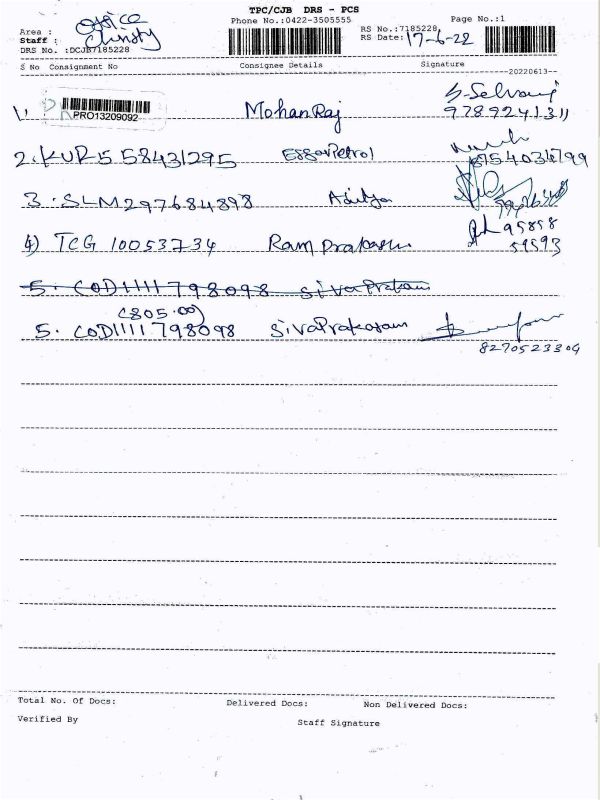 TPC/CJB DRS - PCS
Phone No.:0422-3505555
Page No.:1
Area : Office
Staff : Christy
DRS No. :DCJB7185228
RS No.:7185228
RS Date: 17-6-22
S No Consignment No Consignee Details Signature
20220613
1. PRO13209092 MohanRaj S. Selvaraj
9789241311
2. KUR5 58431295 EssarPetrol
8754034799
3. SLM297684898 Aditya
4) TCG 10053734 Ram Prakash 95858
59593
5. COD1111798098 SivaPrakasam
(805.00)
5. COD1111798098 SivaPrakasam
8270523304
Total No. Of Docs: Delivered Docs: Non Delivered Docs:
Verified By Staff Signature